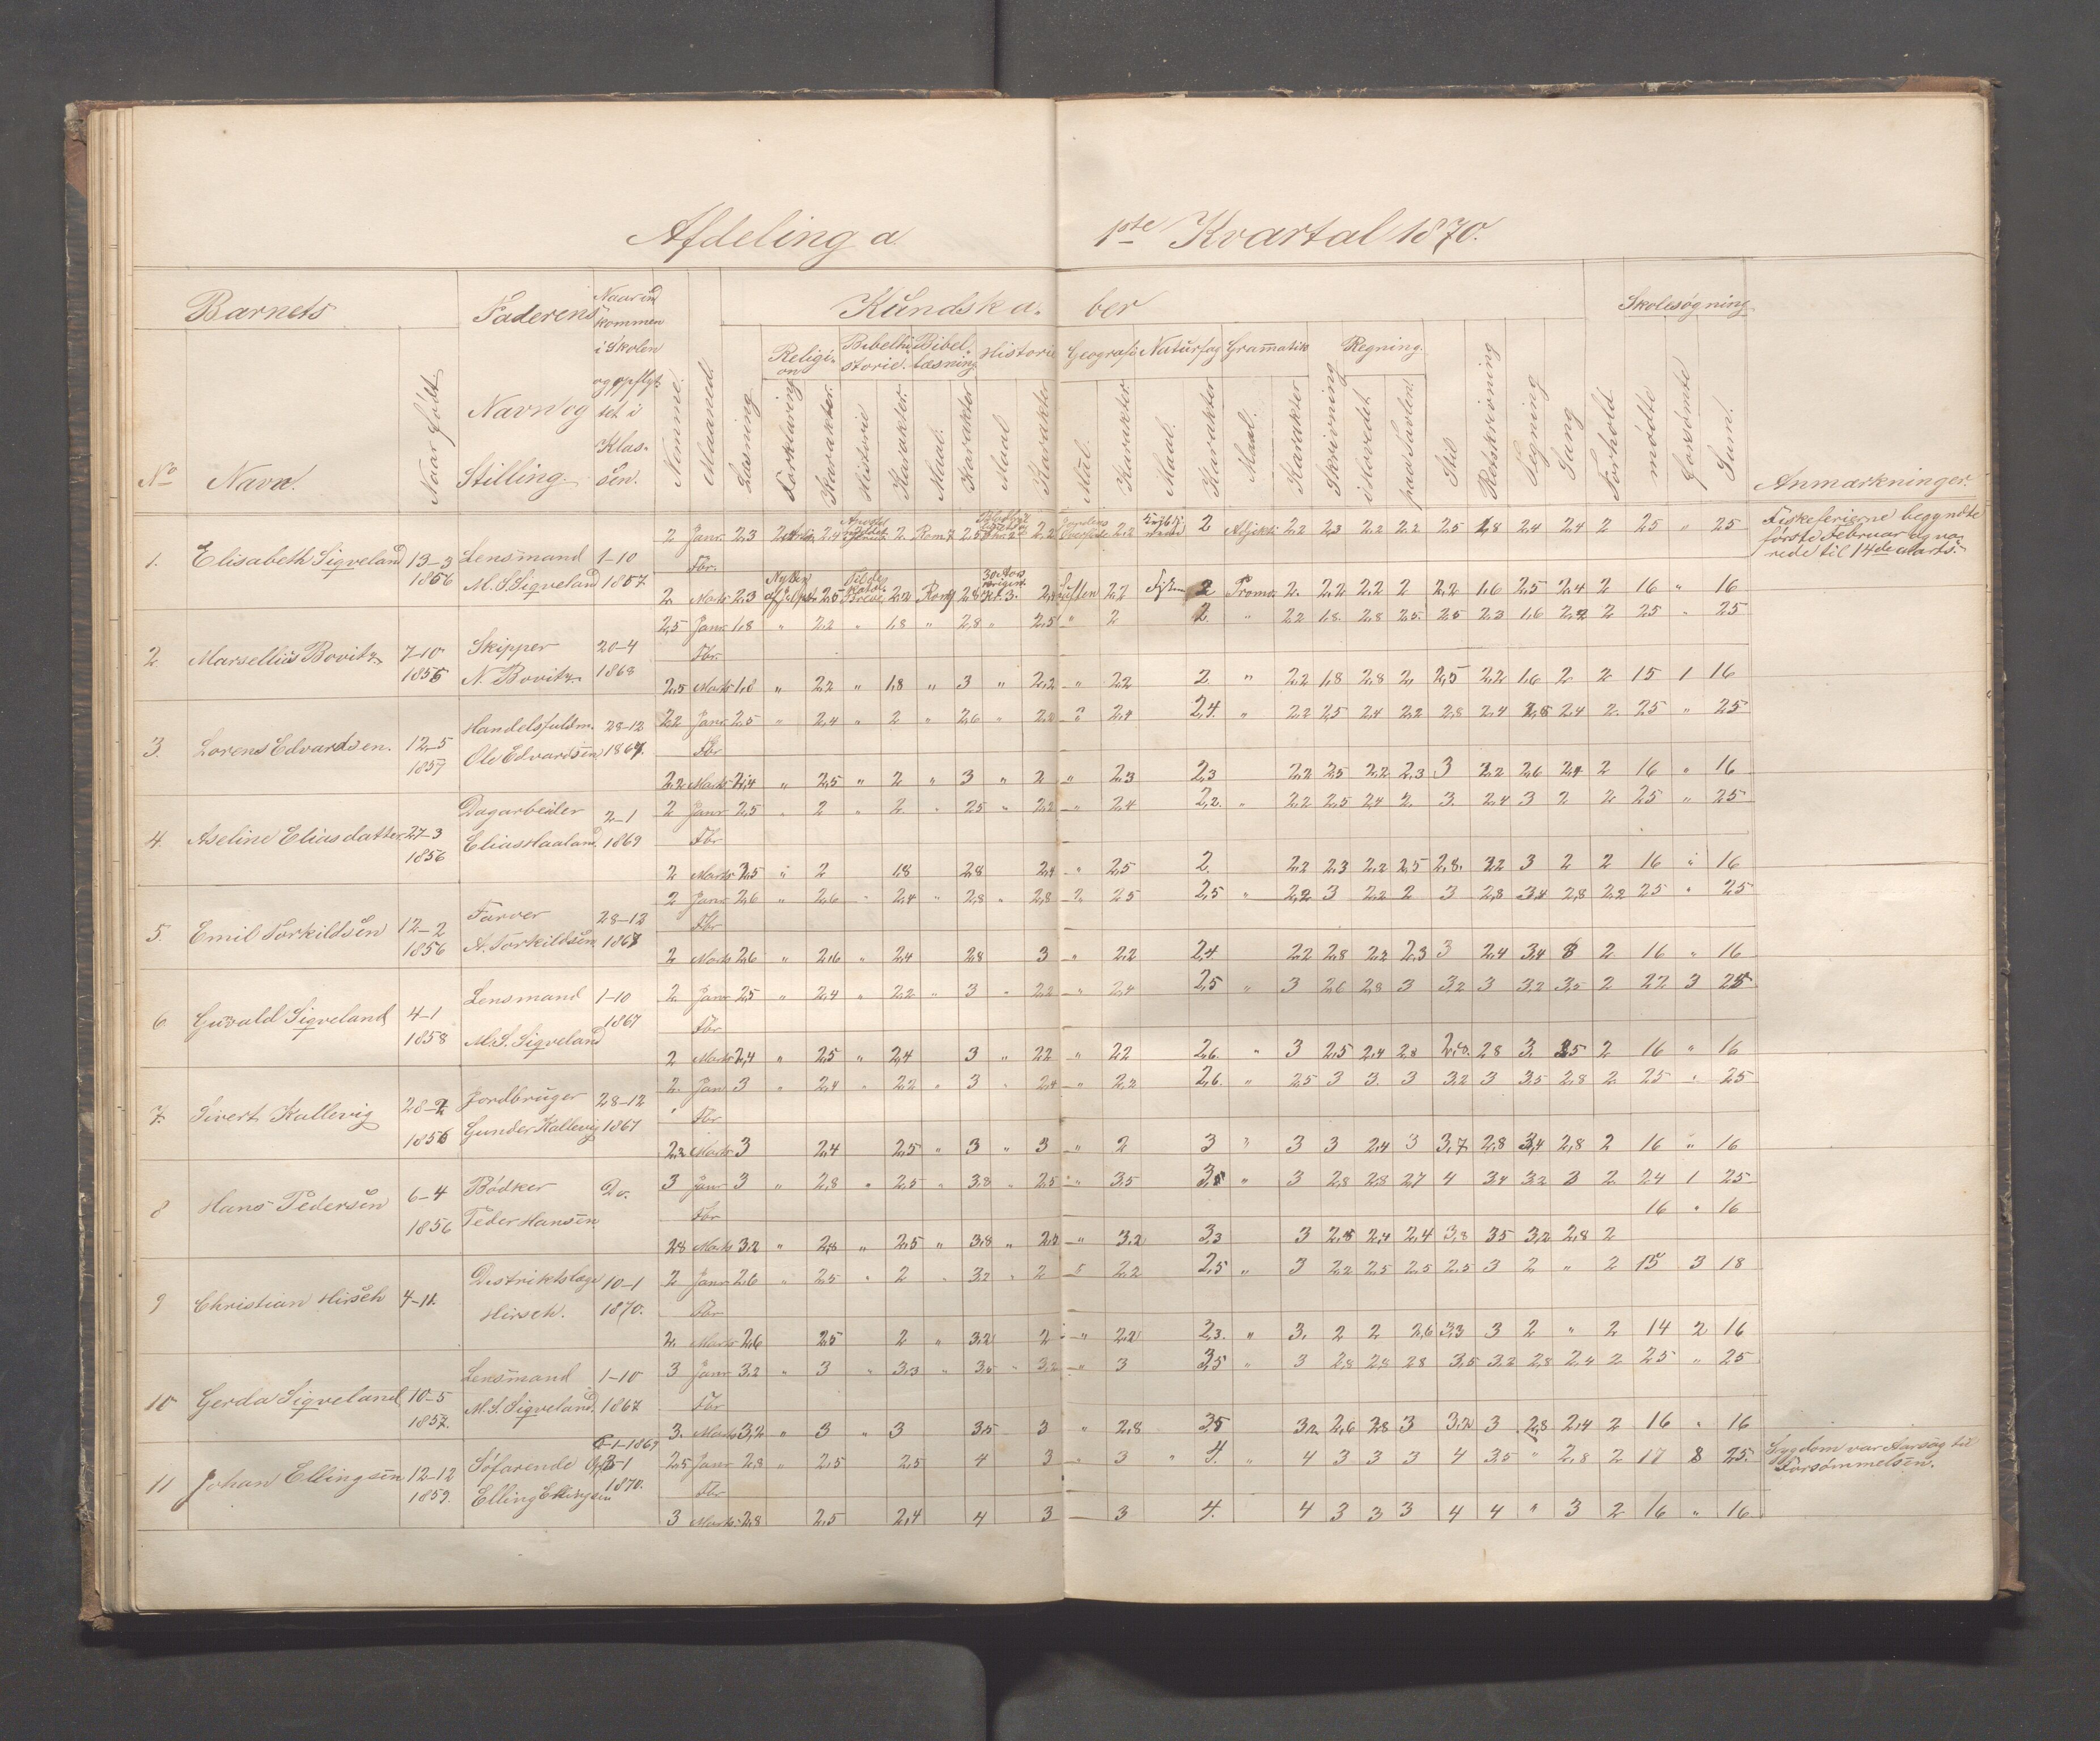 Afdeling a
1ste Kvartal 1870.
Barnets
Faderens
Naar ind
kommen
i Skolen
og opflyt
tet i
Klas-
sen.
Kundska-
ber
Skolesøgning
Religi-
on
Bibelhi
storie.
Bibel
læsning
Historie
Geografi
Naturfag
Gramatik
Regning.
No
Navn.
Naar født
Navn og
Stilling.
Nemme.
Maaned.
Læsning
Forklaring
Karakter.
Historie
Karakter.
Maal.
Karakter
Maal
Karakter
Mål.
Karakter.
Maal.
Karakter
Maal.
Karakter
Skrivning
i Hovedet.
paa Tavlen.
Stil
Retskrivning
Tegning
Sang
Forhold
mødte
forsømte
Sum.
Anmærkninger.
1. Elisabeth Sigveland 13-3 1856 Lensmand M. S. Sigveland 1-10 1867
2 Janr. 2,3 2,4 2 Rom. 2,5 2,2 2,2 2 Adjekti 2,2 2,3 2,2 2,2 2,5 1,8 2,4 2,4 2 25 " 25
Fiskeferierne begyndte
første Februar og va-
rede til 14de Marts.
Fbr.
2 Marts 2,3 2,5 2,2 Rom 2,8 Luften 2,2 2 Pronom. 2. 2,2 2,2 2 2,2 1,6 2,5 2,4 2 16 " 16
2 Marsellius Bovitz 7-10 1855 Skipper N. Bovitz 20-4 1868
2,5 Janr. 1,8 " 2,2 " 1,8 " 2,8 " 2,5 " 2 2. " 2,2 1,8. 2,8 2,5. 2,5 2,3 1,6 2,2 2 25 " 25
Fbr.
2,5 Marts 1,8 " 2,2 " 1,8 " 3 " 2,2 " 2,2 2. " 2,2 1,8 2,8 2, 2,5 2,2 1,6 2 2 15 1 16
3. Lorens Edvardsen. 12-5 1857 Handelsfuldm. Ole Edvardsen 28-12 1867.
2,2 Janr. 2,5 " 2,4 " 2 " 2,6 " 2,2 2,4 2,4. " 2,2 2,5 2,4 2,2 2,8 2,4 2,8 2,4 2. 25 " 25
Fbr
2,2 Marts 2,4 " 2,5 " 2 " 3 " 2 " 2,3 2,3 2,2 2,5 2,2 2,3 3 2,2 2,6 2,4 2 16 " 16
4. Aseline Eliasdatter 27-3 1856 Dagarbeider Elias Haaland 2-1 1869
2 Janr 2,5 " 2 " 2 " 2,5 " 2,2 " 2,4 2,2. " 2,2 2,5 2,4 2. 3. 2,4 3 2 2 25 " 25
Fbr
2 Marts 2,5 " 2 1,8 2,8 2,4 " 2,5 2. 2,2 2,3 2,2 2,5 2,8. 2,2 3 2 2 16 " 16
5. Emil Torkildsen 12-2 1856 Farver A. Torkildsen 28-12 1867
2 Janr 2,6 " 2,6 " 2,4 " 2,8 " 2,8 2,5 2,5 " 2,2 3 2,2 2 3 2,8 3,4 2,8 2,2 25 " 25
Fbr
2 Marts 2,6 " 2,6 " 2,4 2,8 3 " 2,2 2,4 2,2 2,8 2,2 2,3 3 2,4 3,4 3 2 16 " 16
6 Guvald Sigveland 4-1 1858 Lensmand M. S. Sigveland 1-10 1867
2. Janr 2,5 " 2,4 " 2,2 " 3 " 2,2 " 2,4 2,5 " 3 2,6 2,8 3 3,2 3 3,2 3,5 2 22 3 25
Fbr
2 Marts 2,4 " 2,5 " 2,4 3 " 2,2 " 2,2 2,6. " 3 2,5 2,4 2,8 2,8. 2,8 3. 3,5 2 16 " 16
7. Sivert Kallevig 28-2 1856 Jordbruger Gunder Kallevig 28-12 1867
2. Janr 3 " 2,4 " 2,2 " 3 " 2,4 " 2,2 2,6. " 2,5 3 3. 3 3,2 3 3,5 2,8 2. 25 " 25
Fbr
2,2 Marts 3 2,4 2,5 " 3 " 3 " 2 3 " 3 3 2,4 3 3,7 2,8 3,4 2,8 2 16 " 16
8 Hans Pedersen 6-4 1856 Bødker Peder Hansen Do.
3 Janr 3 " 2,8 " 2,5 " 3,8 " 2,5 " 3,5 3,5 " 3 2,8 2,8 2,7 4 3,4 3,2 3 2. 24 1 25
Fbr
16 " 16
2,8 Marts 3,2 " 2,8 " 2,5 " 3,8 " 2,2 " 3,2 3,3 3 2,8 2,4 2,4 3,8 3,5 3,2 2,8 2
9 Christian Hirsch 4-11. Distriktslæge Hirsch. 10-1 1870.
2 Janr 2,6 " 2,5 " 2 " 3,2 " 2 2,2 2,5 " 3 2,2 2,5 2,5 2,5 3 2 " 2 15 3 18
Fbr
2. Marts 2,6 2,5 2 " 3,2 2 " 2,2 2,3. " 3. 2 2 2,6 3,3 3 2 " 2 14 2 16
10 Gerda Sigveland 10-5 1857. Lensmand M. S. Sigveland. 1-10 1867
3 Janr 3,2 " 3 " 3,3 " 3,5 " 3,2 " 3 3,5 " 3 2,8 2,8 2,8 3,5 3,2 2,8 2,4 2 25 " 25
Fbr
3. Marts 3,2 " 3 " 3 3,5 3 " 2,8 3,5 3,2 2,6 2,8 3 3,2 3 2,8 2,4 2 16 " 16
11 Johan Ellingsen 12-12 1859. Søfarende Elling Ellingsen 1-1869 1870.
2,5 Janr 2,8 " 2,5 2,5 4 3 " 3 " 4. " 4 3 3 3 4 3,5 " 2,8 2 17 8 25.
Sygdom var Aarsag til
Forsømmelsen.
Fbr
3 Marts 2,8 2,5 2,4 4 3 3 4. 4 3 3 3 4 4 " 3 2 16 " 16